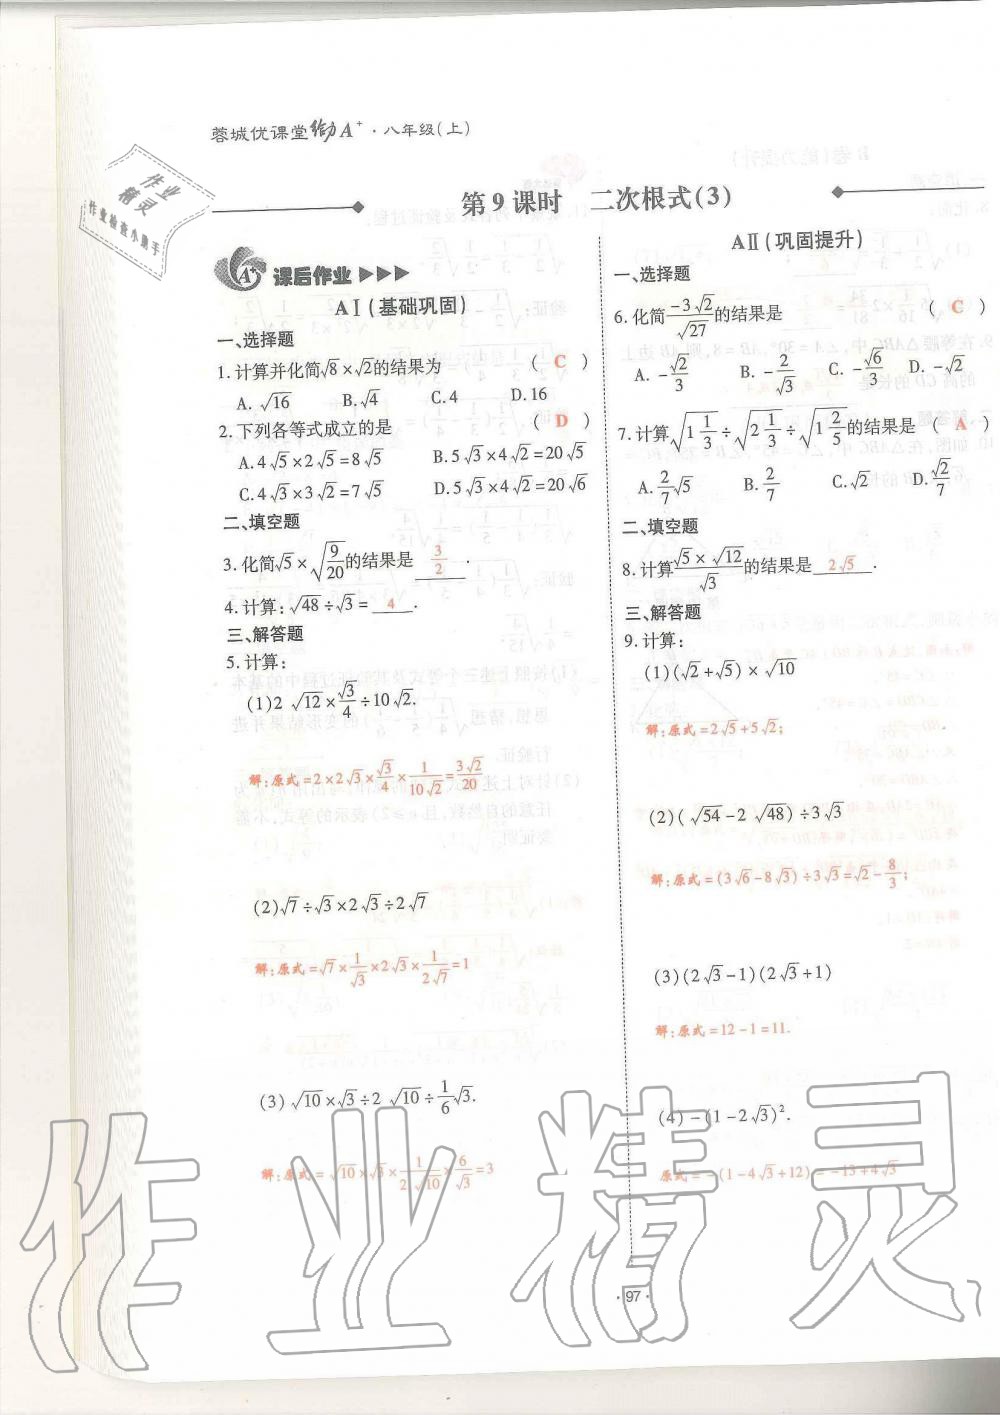 蓉城优课堂 给力A⁺·八年级(上)
第9课时 二次根式(3)
作业
精灵
作业检查小助手
A⁺ 课后作业
AⅠ(基础巩固)
一、选择题
1.计算并化简√8×√2的结果为 ( C )
A.√16 B.√4 C.4 D.16
2.下列各等式成立的是 ( D )
A.4√5×2√5=8√5 B.5√3×4√2=20√5
C.4√3×3√2=7√5 D.5√3×4√2=20√6
二、填空题
3.化简√5×√(9/20)的结果是 3/2 .
4.计算:√48÷√3= 4 .
三、解答题
5.计算:
(1)2√12×√3/4÷10√2.
解:原式=2×2√3×√3/4×1/(10√2)=3√2/20
(2)√7÷√3×2√3÷2√7
解:原式=√7×1/√3×2√3×1/(2√7)=1
(3)√10×√3÷2√10÷1/6√3.
解:原式=√10×√3×1/(2√10)×6/√3=3
AⅡ(巩固提升)
一、选择题
6.化简(-3√2)/√27的结果是 ( C )
A.-√2/3 B.-2/√3 C.-√6/3 D.-√2
7.计算√(1 1/3)÷√(2 1/3)÷√(1 2/5)的结果是 ( A )
A.2/7√5 B.2/7 C.√2 D.√2/7
二、填空题
8.计算(√5×√12)/√3的结果是 2√5 .
三、解答题
9.计算:
(1)(√2+√5)×√10
解:原式=2√5+5√2;
(2)(√54-2√48)÷3√3
解:原式=(3√6-8√3)÷3√3=√2-8/3;
(3)(2√3-1)(2√3+1)
解:原式=12-1=11.
(4)-(1-2√3)².
原式=-(1-4√3+12)=-13+4√3
·97·
作业精灵